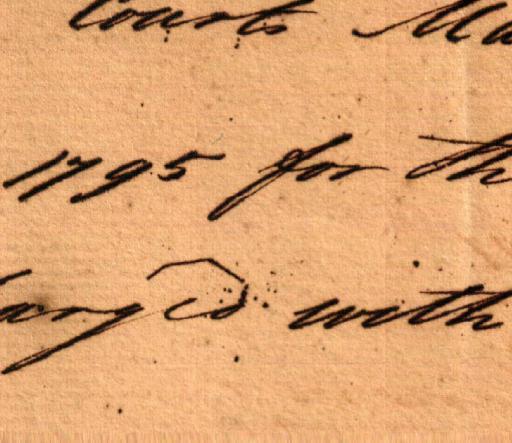 Courts Ma
1795 for th
harged with